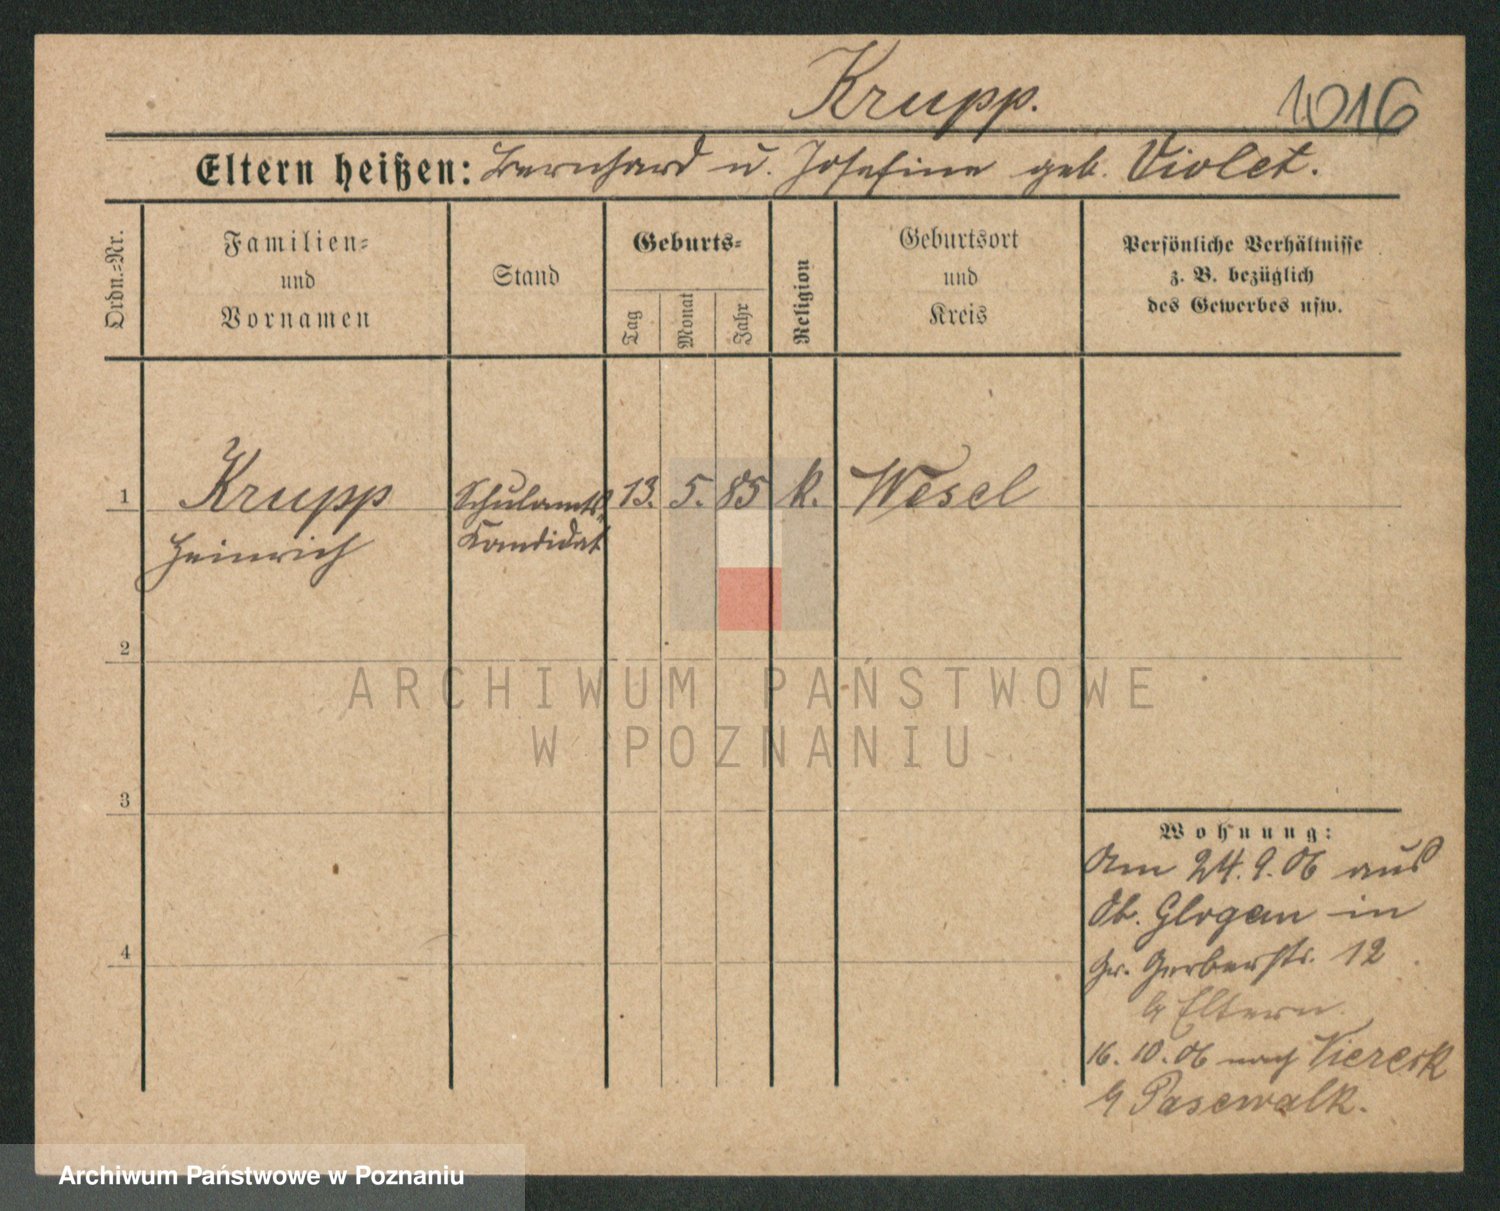 Krupp.
1016
Eltern heißen: Bernhard u. Josefine geb. Violet.
Ordn.=Nr.
Familien=
und
Vornamen
Stand
Geburts=
Tag
Monat
Jahr
Religion
Geburtsort
und
Kreis
Persönliche Verhältnisse
z. B. bezüglich
des Gewerbes usw.
1 Krupp Schulamts= 13. 5. 85 k. Wesel
Heinrich Kandidat
2
ARCHIWUM PAŃSTWOWE
W POZNANIU
3
Wohnung:
Am 24.9.06 aus
Ob. Glogau in
Gr. Gerberstr. 12
4
b/ Eltern.
16. 10. 06 nach Viereck
b/ Pasewalk.
Archiwum Państwowe w Poznaniu